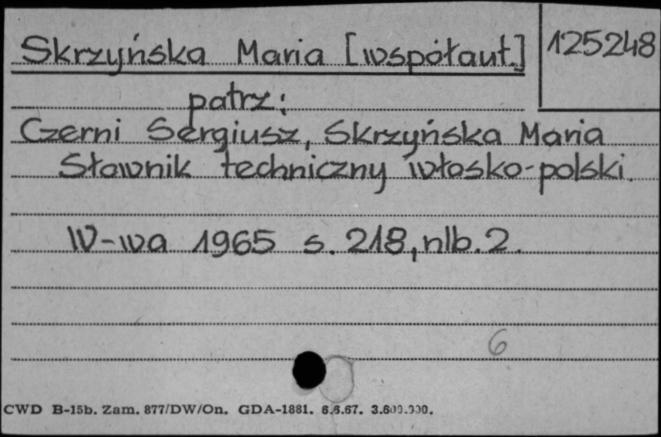 Skrzyńska Maria [współaut.] 125248
patrz:
Czerni Sergiusz, Skrzyńska Maria
Słownik techniczny włosko-polski.
W-wa 1965 s. 218, nlb. 2.
6
CWD B-15b. Zam. 877/DW/On. GDA-1881. 6.6.67. 3.600.000.